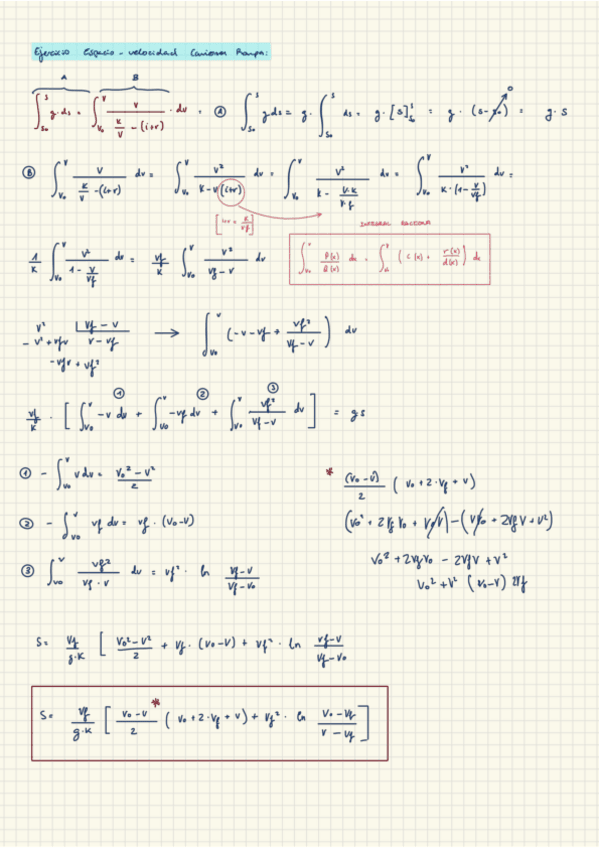 Ejercicio Espacio - velocidad Camiones Rampa:
A B
∫_{S₀}^{S} g·ds = ∫_{V₀}^{V} V / (K/V − (i+r)) · dv = Ⓐ ∫_{S₀}^{S} g ds = g · ∫_{S₀}^{S} ds = g · [S]_{S₀}^{S} = g · (S − S₀) = g · S
0
Ⓑ ∫_{V₀}^{V} V / (K/V − (i+r)) dv = ∫_{V₀}^{V} V² / (K − V(i+r)) dv = ∫_{V₀}^{V} V² / (K − V·K/Vf) dv = ∫_{V₀}^{V} V² / (K·(1 − V/Vf)) dv =
[i+r = K/Vf]
INTEGRAL RACIONAL
1/K ∫_{V₀}^{V} V² / (1 − V/Vf) dv = Vf/K ∫_{V₀}^{V} V² / (Vf − V) dv
∫ P(x)/Q(x) dx = ∫ (C(x) + r(x)/d(x)) dx
V² | Vf − V
− V² + VfV − V − Vf → ∫_{V₀}^{V} (−V − Vf + Vf²/(Vf − V)) dv
− VfV + Vf²
① ② ③
Vf/K · [∫_{V₀}^{V} −V dv + ∫_{V₀}^{V} −Vf dv + ∫_{V₀}^{V} Vf²/(Vf − V) dv] = g s
① − ∫_{V₀}^{V} V dv = (V₀² − V²)/2
② − ∫_{V₀}^{V} Vf dv = Vf · (V₀ − V)
③ ∫_{V₀}^{V} Vf²/(Vf − V) dv = Vf² · ln (Vf − V)/(Vf − V₀)
* (V₀ − V)/2 (V₀ + 2·Vf + V)
(V₀² + 2Vf V₀ + V₀V) − (VV₀ + 2Vf V + V²)
V₀² + 2Vf V₀ − 2Vf V + V²
V₀² + V² (V₀ − V) 2Vf
S = Vf/(g·K) [(V₀² − V²)/2 + Vf · (V₀ − V) + Vf² · ln (Vf − V)/(Vf − V₀)
S = Vf/(g·K) [(V₀ − V)/2 * (V₀ + 2·Vf + V) + Vf² · ln (V₀ − Vf)/(V − Vf)]